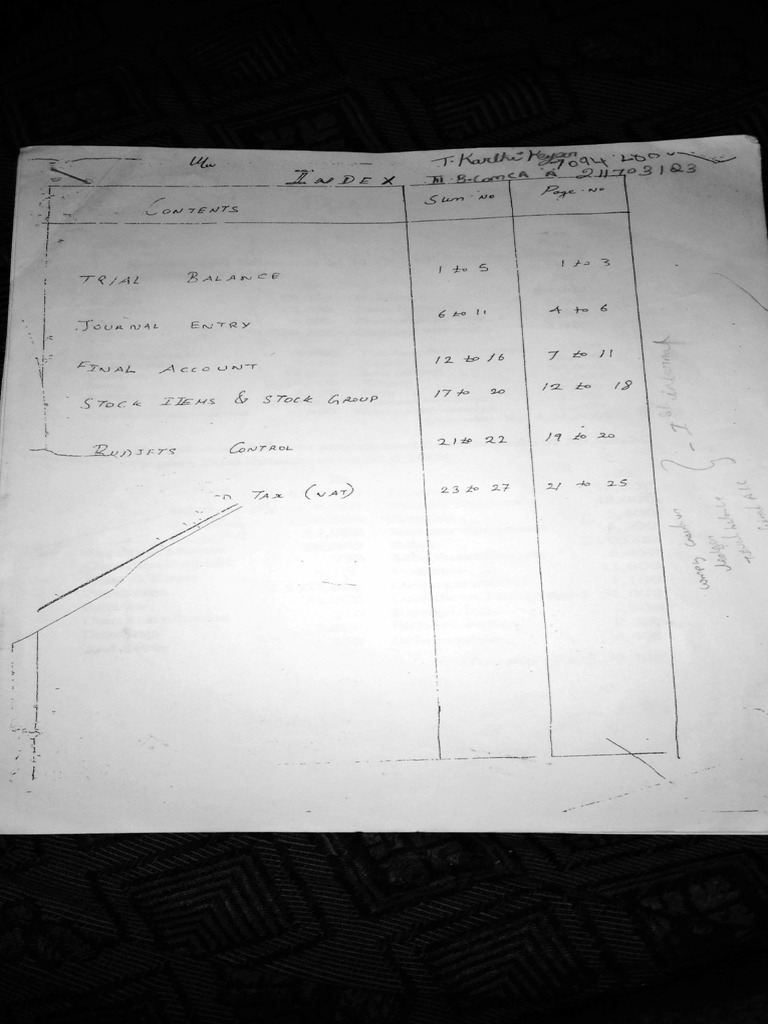 T. Karthi Keyan
INDEX III B.COM CA 'A' 211703123
CONTENTS Sum no Page no
TRIAL BALANCE 1 to 5 1 to 3
JOURNAL ENTRY 6 to 11 4 to 6
FINAL ACCOUNT 12 to 16 7 to 11
STOCK ITEMS & STOCK GROUP 17 to 20 12 to 18
BUDJETS CONTROL 21 to 22 19 to 20
TAX (VAT) 23 to 27 21 to 25